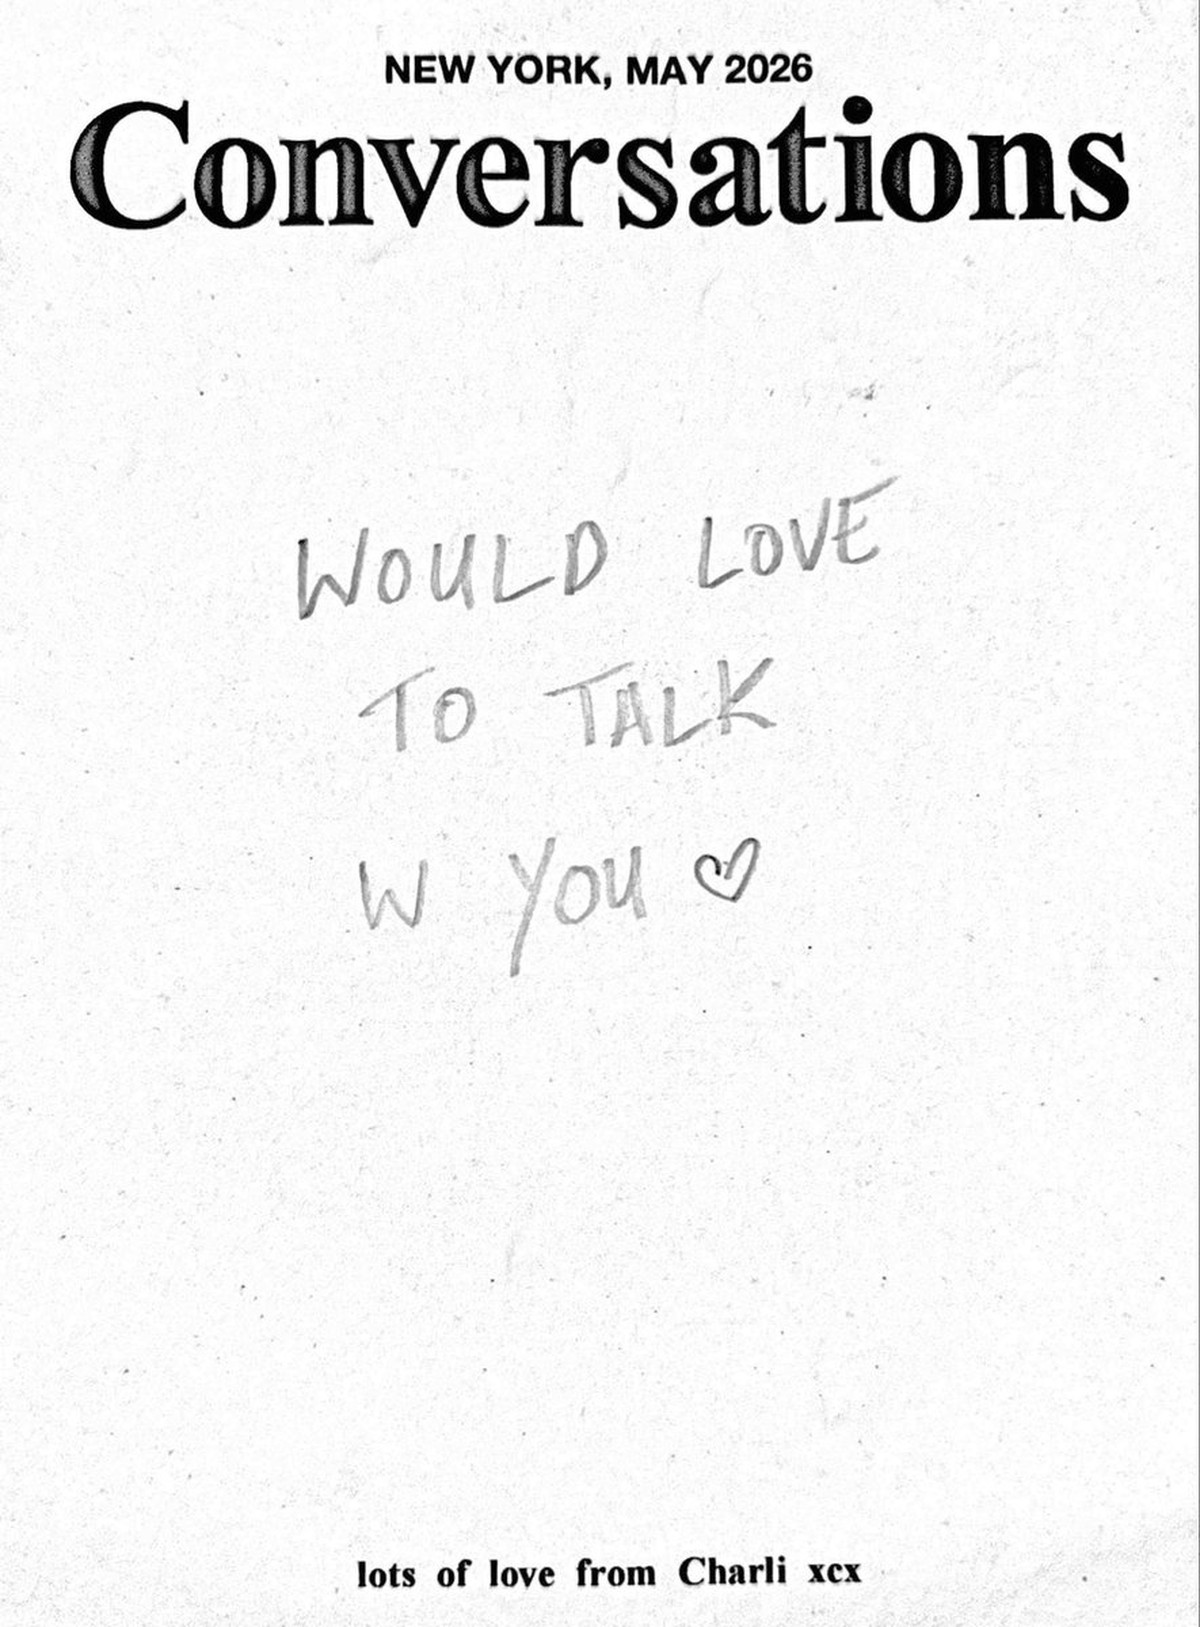 NEW YORK, MAY 2026
Conversations
WOULD LOVE
TO TALK
W YOU ♡
lots of love from Charli xcx